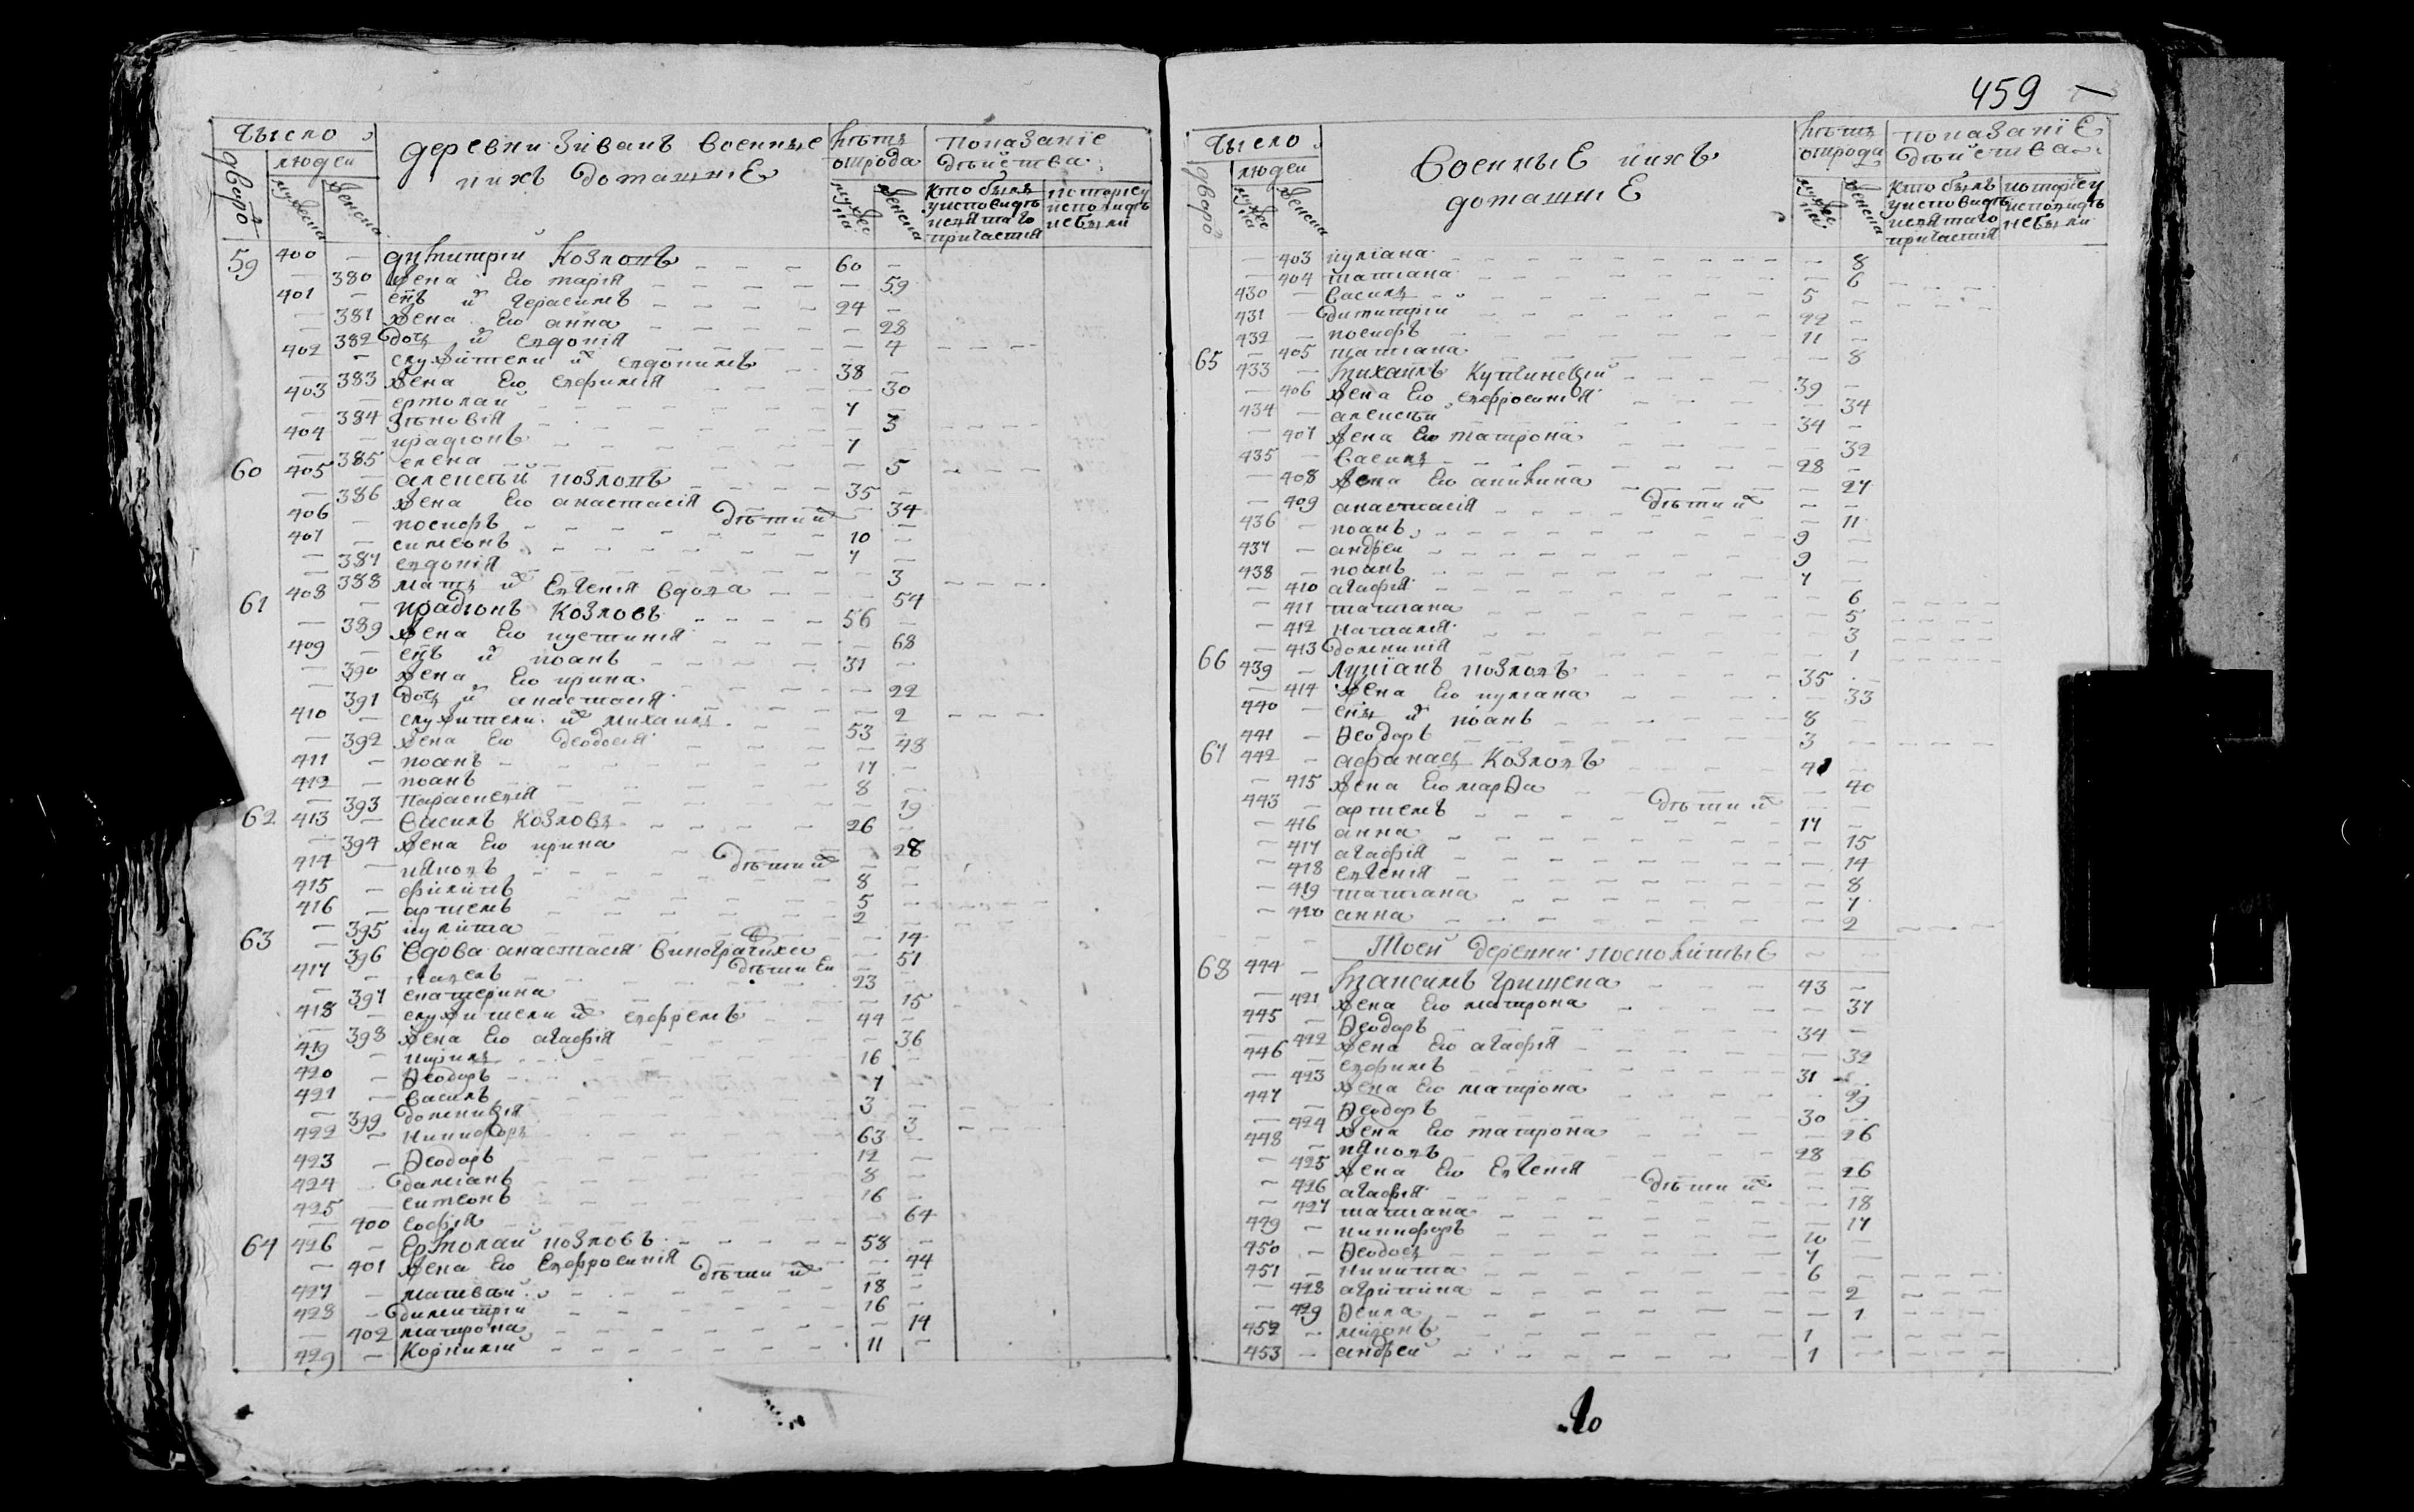 459
Число
людеи
дворо
мужеска
женска
деревни Зиванъ военные
и ихъ домашние
лѣта
от рода
показание
дѣиства
мужес
ка
женска
Кто былъ
у исповидѣ
и святаго
причастия
и которие у
исповидѣ
не были
59 400 — димитрии Козловъ — 60 —
— 380 жена его мария — 59
401 — снъ и герасимъ 24 —
— 381 жена его анна — 28
— 382 доч и евдокия — 4
402 — служители их евдокимъ 38 —
— 383 жена его евфимия — 30
403 — ермолаи 7 —
— 384 зѣновия — 3
404 — ирадионъ 7 —
— 385 елена — 5
60 405 — алексѣй козловъ 35 —
— 386 жена его анастасия — 34
дѣти их
406 — иосифъ 10 —
407 — симеонъ 7 —
— 387 евдокия — 3
— 388 мать их евгения вдова — 54
61 408 — ирадионъ Козловъ 56 —
— 389 жена его иустиния — 68
409 — снъ и иоанъ 31 —
— 390 жена его ирина — 22
— 391 доч и анастасия — 2
410 — служители их михаилъ 53 —
— 392 жена его феодосия — 48
411 — иоанъ 17 —
412 — иоанъ 8 —
— 393 параскевия — 19
62 413 — василъ Козловъ 26 —
— 394 жена его ирина — 28
дѣти их
414 — ияковъ 8 —
415 — филипъ 5 —
416 — артемъ 2 —
— 395 иулита — 14
63 — 396 вдова анастасия — 51
дѣти еи
417 — павелъ 23 —
— 397 екатерина — 15
418 — служители их евфремъ 44 —
— 398 жена его агафия — 36
419 — кирилъ 16 —
420 — Феодоръ 7 —
421 — василъ 3 —
— 399 доменикия — 3
422 — никифоръ 63 —
423 — Феодоръ 12 —
424 — дамианъ 8 —
425 — симеонъ 16 —
— 400 софия — 64
64 426 — Ермолаи козловъ 58 —
— 401 жена его Евфросиния — 44
дѣти их
427 — матвѣи 18 —
428 — димитрии 16 —
— 402 матрона — 14
429 — Корнилии 11 —
Число
людеи
дворо
мужес
ка
женска
военные и ихъ
домашние
лѣта
от рода
показание
дѣиства
мужес
ка
женска
Кто былъ
у исповидѣ
и святаго
причастия
которие у
исповидѣ
не были
— 403 иулиана — 8
— 404 татиана — 6
430 — василъ 5 —
431 — димитрии 22 —
432 — иосифъ 11 —
— 405 татиана — 8
65 433 — михаилъ 39 —
— 406 жена его евфросиния — 34
434 — алексѣи 34 —
— 407 жена его матрона — 32
435 — василъ 28 —
— 408 жена его акилина — 27
дѣти их
— 409 анастасия — 11
436 — иоанъ 9 —
437 — андреи 9 —
438 — иоанъ 7 —
— 410 агафия — 6
— 411 татиана — 5
— 412 наталия — 3
— 413 доменикия — 1
66 439 — лукианъ козловъ 35 —
— 414 жена его иулиана — 33
440 — снъ их иоанъ 8 —
441 — Феодоръ 3 —
67 442 — афанас Козловъ —
— 415 жена его марфа — 40
дѣти их
443 — артемъ 17 —
— 416 анна — 15
— 417 агафия — 14
— 418 евгения — 8
— 419 татиана — 7
— 420 анна — 2
Тоеи деревни посполитые
68 444 — максимъ Грищенко 43 —
— 421 жена его матрона — 37
445 — Феодоръ 34 —
— 422 жена его агафия — 32
446 — евфимъ 31 —
— 423 жена его матрона — 29
447 — Феодоръ 30 —
— 424 жена его матрона — 26
448 — ияковъ 28 —
— 425 жена его Евгения — 26
дѣти их
— 426 агафия — 18
— 427 татиана — 17
449 — никифоръ 10 —
450 — Феодосъ 7 —
451 — никита 6 —
— 428 агрипина — 2
— 429 Фекла — 1
452 — миронъ 1 —
453 — андреи 1 —